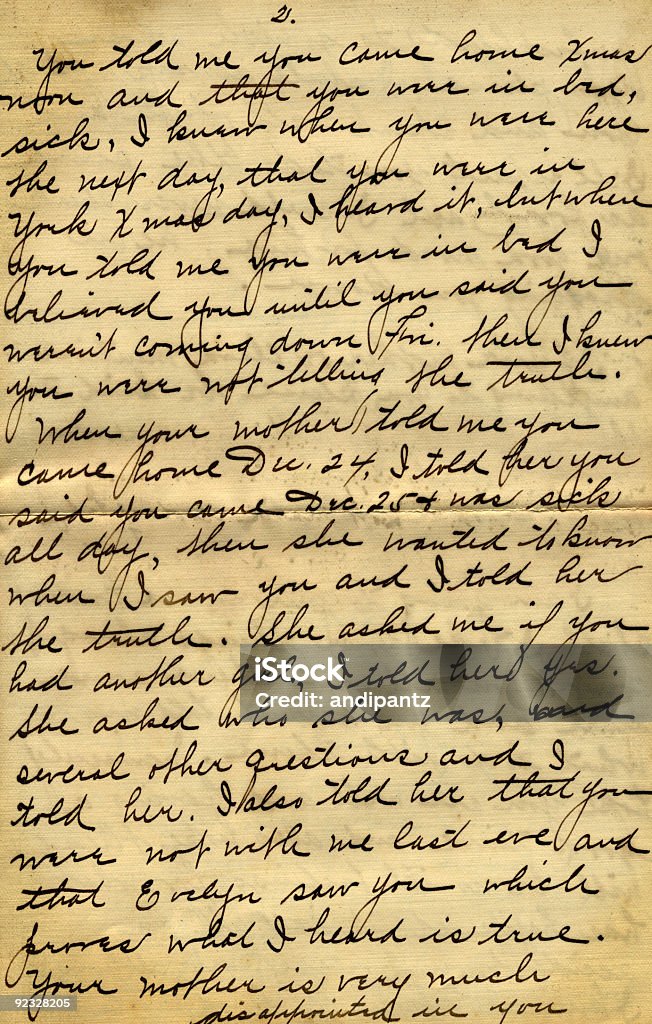 2.
You told me you came home Xmas
noon and that you were in bed,
sick, I knew when you were here
the next day, that you were in
York Xmas day, I heard it, but when
you told me you were in bed I
believed you until you said you
weren't coming down Fri. then I knew
you were not telling the truth.
When your mother told me you
came home Dec. 24, I told her you
said you came Dec. 25 + was sick
all day, then she wanted to know
when I saw you and I told her
the truth. She asked me if you
had another girl, I told her yes.
She asked who she was, and
several other questions and I
told her. I also told her that you
were not with me last eve and
that Evelyn saw you which
proves what I heard is true.
Your mother is very much
disappointed in you
iStock
Credit: andipantz
92328205